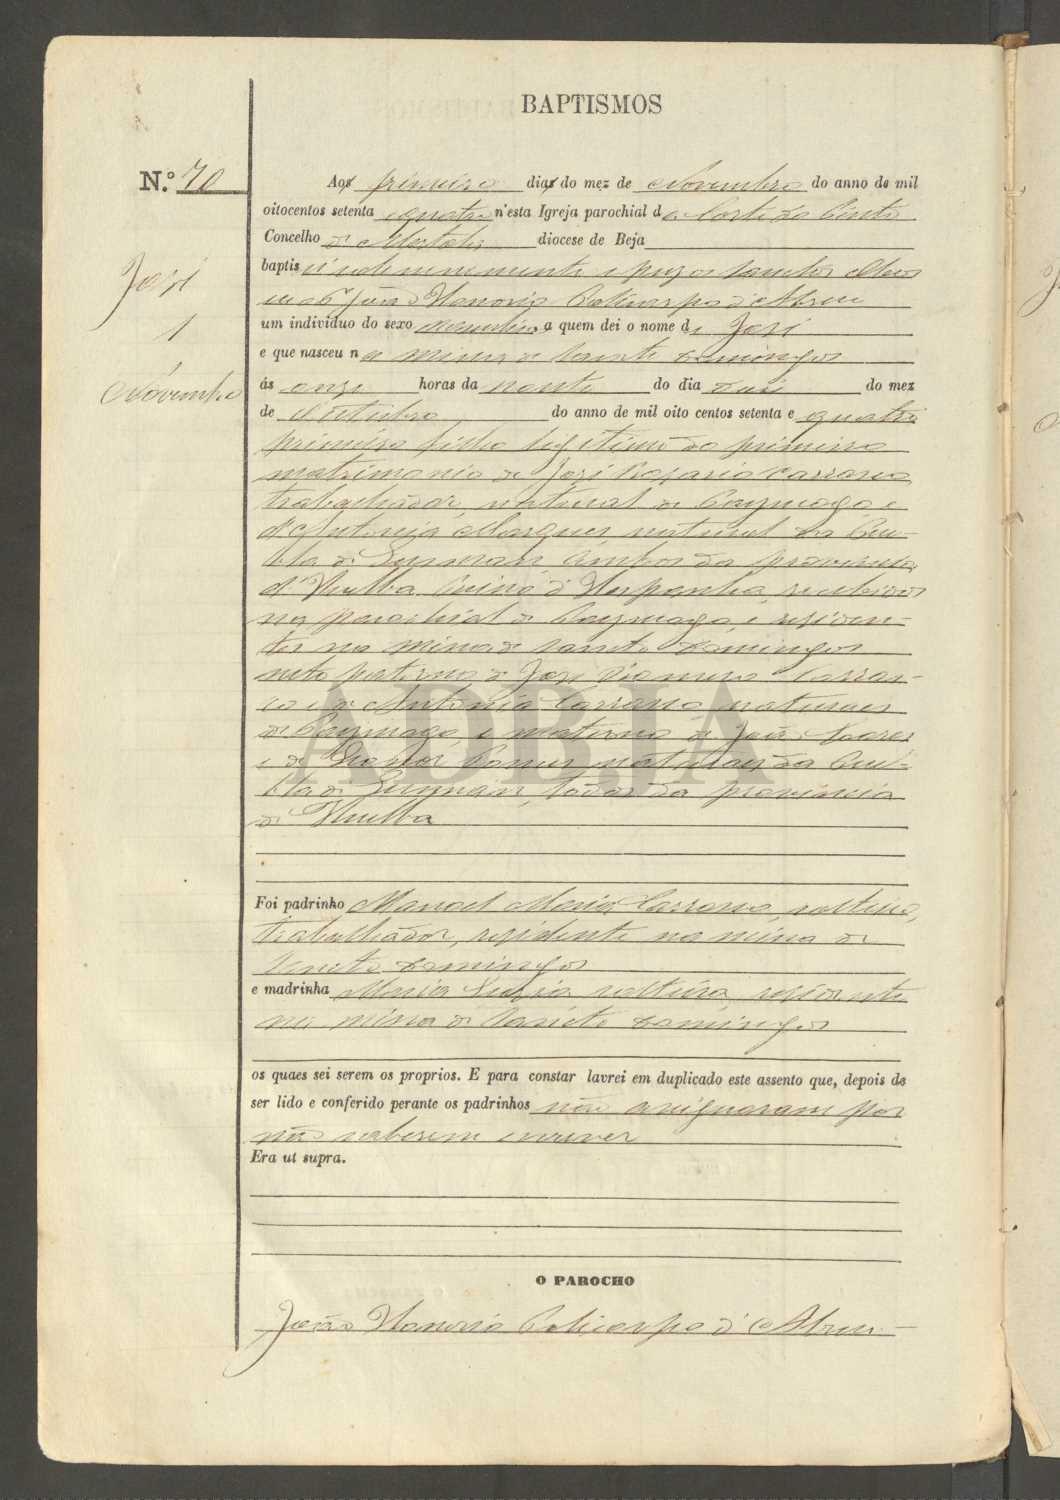 BAPTISMOS
N.º 70
Aos primeiro dias do mez de Novembro do anno de mil
oitocentos setenta e quatro n'esta Igreja parochial de Corte do Pinto
Concelho de Mertola diocese de Beja
José
baptisei solemnemente e puz os santos oleos
João Honorio Policarpo d'Abreu
1
um individuo do sexo masculino a quem dei o nome de José
e que nasceu na mina de Santo Domingos
Novembro
ás onze horas da noute do dia do mez
de Outubro do anno de mil oito centos setenta e quatro
primeiro filho legitimo do primeiro
matrimonio de José Carrasco
trabalhador, natural de e
d'Antonia Marques natural da Pue-
bla de Gusman, ambos da provincia
d'Huelba Reino d'Hespanha, recebidos
na parochial de e residen-
tes na mina de Santo Domingos
neto paterno de José Carras-
co e de Antonia naturaes
de e materno de João
e de Gomes naturaes da Pue-
bla de Gusman, todos da provincia
de Huelba
Foi padrinho Manoel Maria solteiro,
trabalhador, residente na mina de
Santo Domingos
e madrinha Maria Luzia solteira, residente
na mina de Santo Domingos
os quaes sei serem os proprios. E para constar lavrei em duplicado este assento que, depois de
ser lido e conferido perante os padrinhos não assignaram por
não saberem escrever
Era ut supra.
O PAROCHO
João Honorio Policarpo d'Abreu
ADBJA